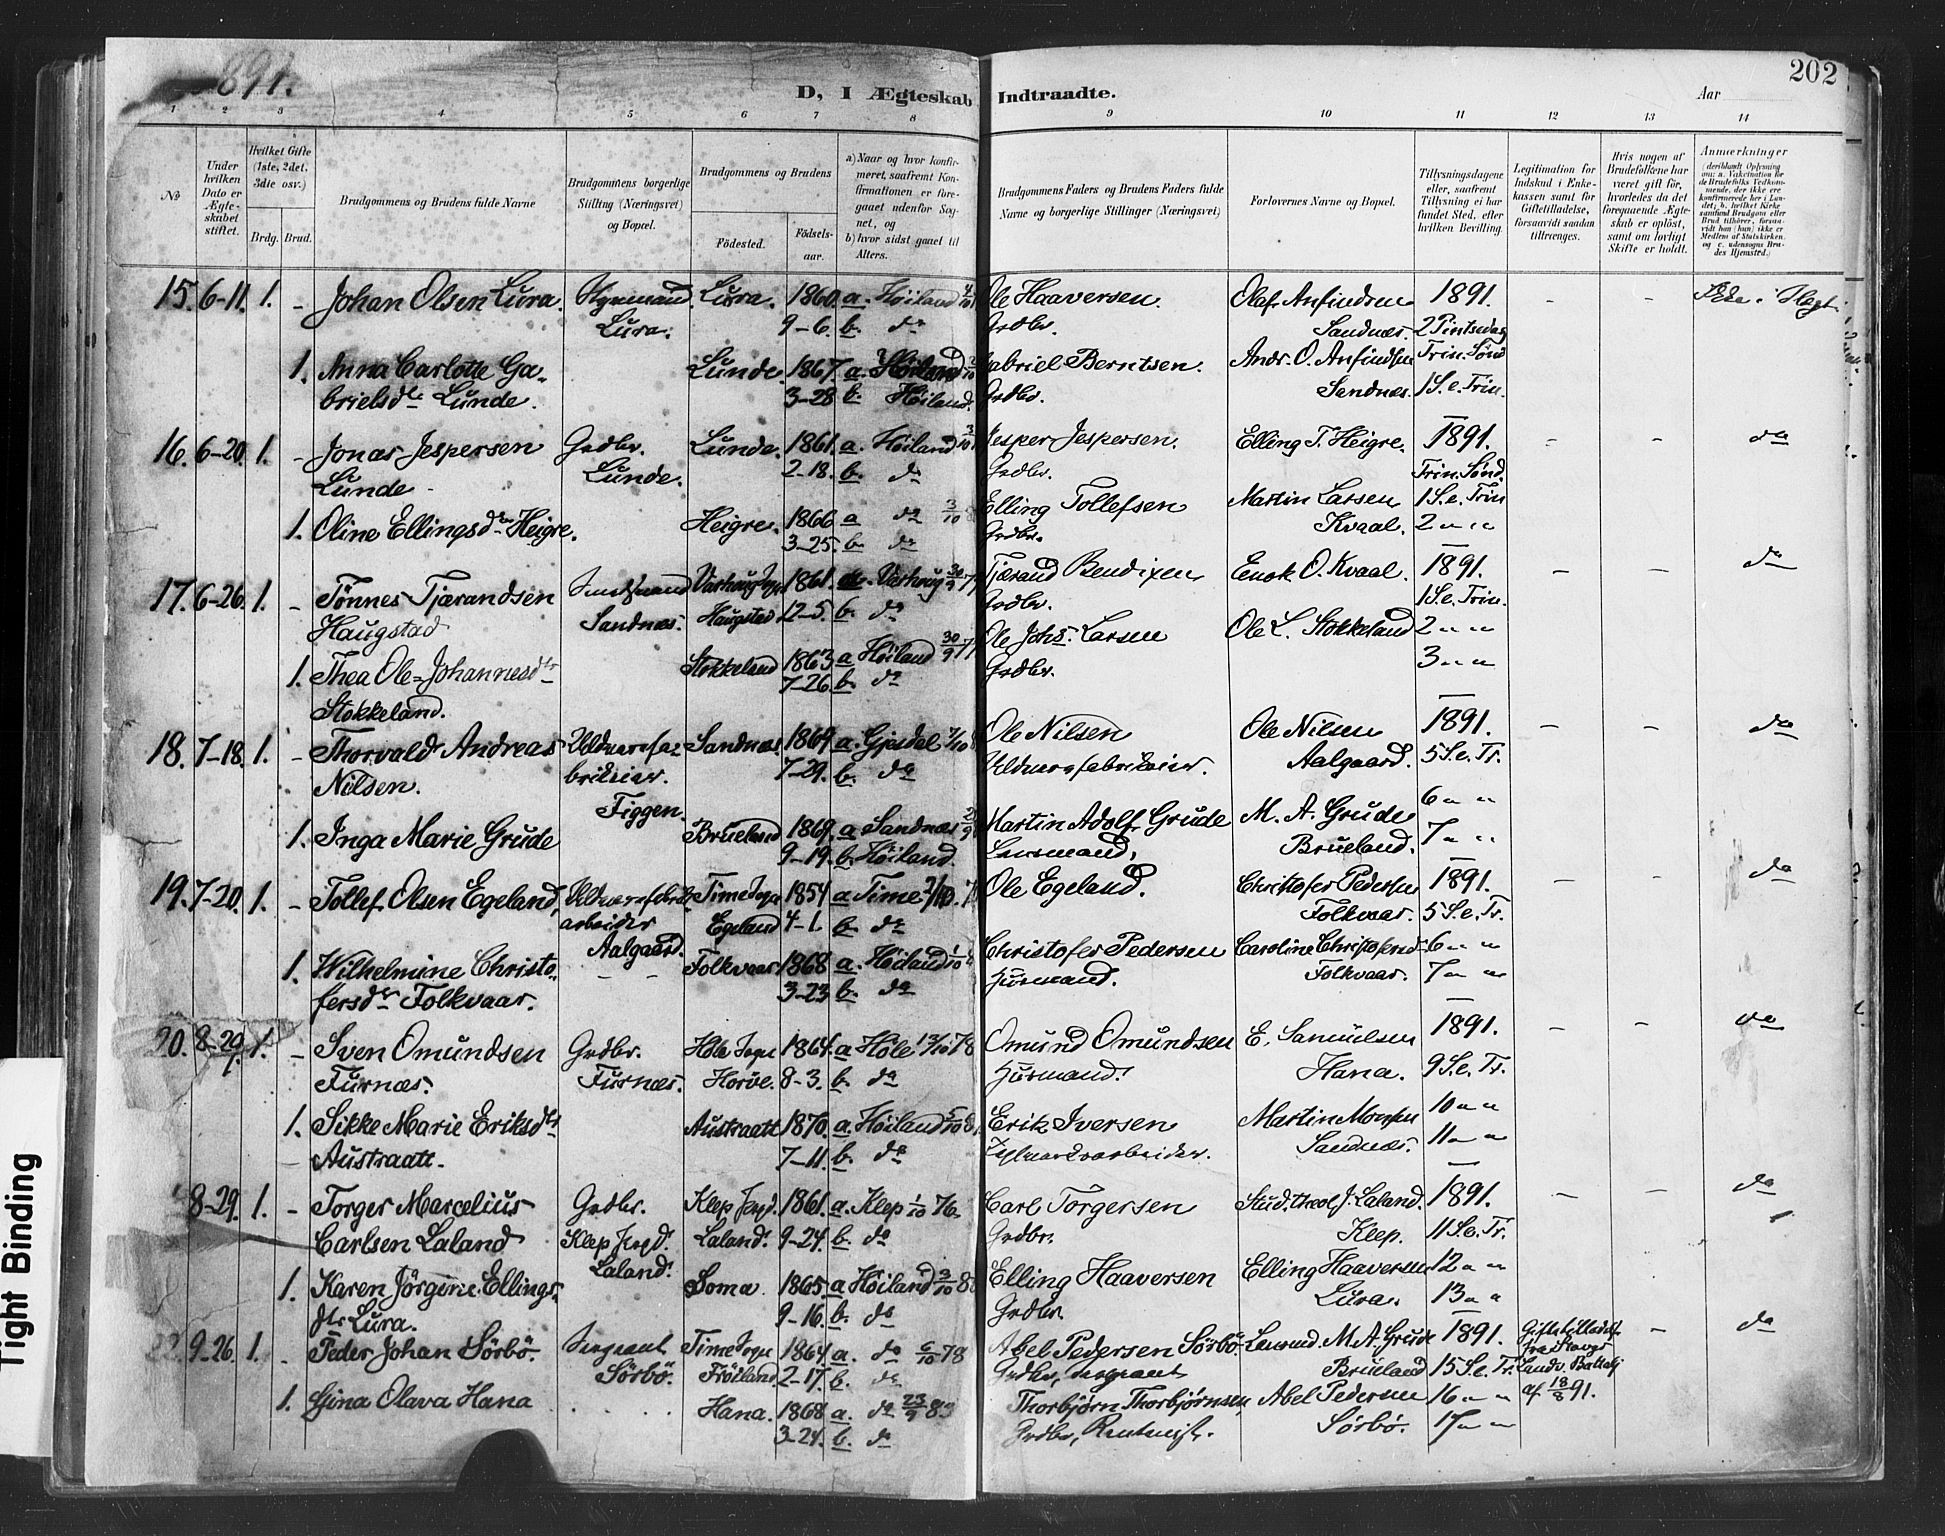 891.
202
D, I Ægteskab Indtraadte.
Aar
1 2 3 4 5 6 7 8 9 10 11 12 13 14
No
Under hvilken Dato er Ægteskabet stiftet.
Hvilket Gifte (1ste, 2det, 3die osv.)
Brdg. Brud.
Brudgommens og Brudens fulde Navne
Brudgommens borgerlige Stilling (Næringsvei) og Bopæl.
Brudgommens og Brudens
Fødested.
Fødselsaar.
a) Naar og hvor konfirmeret, saafremt Konfirmationen er foregaaet udenfor Sognet, og
b) hvor sidst gaaet til Alters.
Brudgommens Faders og Brudens Faders fulde Navne og borgerlige Stillinger (Næringsvei)
Forlovernes Navne og Bopæl.
Tillysningsdagene eller, saafremt Tillysning ei har fundet Sted, efter hvilken Bevilling.
Legitimation for Indskud i Enkekassen samt for Giftetilladelse, forsaavidt saadan tiltrænges.
Hvis nogen af Brudefolkene har været gift før, hvorledes da det foregaaende Ægteskab er opløst, samt om lovligt Skifte er holdt.
Anmærkninger (deriblandt Oplysning om: a. Vakcination for de Brudefolks Vedkommende, der ikke ere konfirmerede her i Landet; b. hvilket Kirkesamfund Brudgom eller Brud tilhører, forsaavidt han (hun) ikke er Medlem af Statskirken, og c. udensogns Brudes Hjemsted.)
15. 6-11. 1. - Johan Olsen Lura. Lura. 1860. a. Høiland Ole Haaversen Olaf Anfindsen 1891. - -
Lura. 9-6. b. do Grdbr. Sandnæs. 2 Pintsedag
1. Anna Carlotte Ga- Lunde. 1867. a. Høiland Gabriel Berntsen. Andr. O. Anfindsen Trin. Sønd
brielsdtr Lunde. 3-28 b. Høiland. Grdbr. Sandnæs. 1 S. e. Trin.
16. 6-20. 1. - Jonas Jespersen Grdbr. Lunde. 1861. a. Høiland 3/10 Jesper Jespersen. Elling T. Heigre. 1891. - - do
Lunde Lunde. 2-18. b. do Grdbr. Trin. Sønd.
Elling Tollefsen Martin Larsen 1 S. e. Trin
1. Oline Ellingsdtr Heigre. Heigre. 1866 a do 3/10 Grdbr. Kvaal. 2 " "
3-25. b. do
17. 6-26. 1. - Tønnes Tjærandsen Varhaug Sogn 1861. a. Varhaug 30/9 Tjærand Bendixen Enok O. Kvaal. 1891. - - do
Haugstad Sandnæs. Haugstad 12-5. b. do Grdbr. 1 S. e. Trin.
Ole Johs. Larsen Ole L. Stokkeland 2 " "
1. Thea Ole-Johannesdtr Stokkeland 1863 a Høiland 30/9 77 Grdbr. 3 " "
Stokkeland. 7-26. b. do
18. 7-18. 1. - Thorvald Andreas Uldvarefa- Sandnæs. 1869. a. Gjesdal Ole Nilsen Ole Nilsen 1891. - - do
Nilsen. brikeier. 7-29. b. do Uldvarefabrikeier. Aalgaard. 5 S. e. Tr.
Figgen. 6 " "
1. Inga Marie Grude Brueland 1869. a Sandnæs Martin Adolf Grude M. A. Grude 7 " "
9-19. b. Høiland. Lensmand, Brueland.
19. 7-20. 1. - Tollef Olsen Egeland, Time Sogn 1854 a Time Ole Egeland. Christofer Pedersen 1891. - - do
arbeider Egeland 4-1. b. do Folkvaar. 5 S. e. Tr.
Aalgaard. Christofer Pedersen Caroline Christofersd. 6 " "
1. Wilhelmine Christo- - - Folkvaar 1868 a. Høiland 1/10 Husmand. Folkvaar. 7 " "
fersdtr Folkvaar. 3-23 b. do
20. 8-29. 1. - Sven Omundsen Grdbr. Høle Sogn 1864. a Høle 13/10 78 Omund Omundsen E. Samuelsen 1891. - - do
Furnæs. Furnæs. Horve. 8-3. b. do Husmand. Hana. 9 S. e. Tr.
Erik Iversen Martin Monsen 10 " "
1. Sikke Marie Eriksdtr Austraatt 1870. a. Høiland 5/10 Sandnæs. 11 " "
Austraatt. 7-11. b. do
8-29. 1. - Torger Marcelius Grdbr. Klep 1861. a. Klep 1/10 76 Carl Torgersen Stud. theol. J. Laland. 1891. - - do
Carlsen Laland Klep Laland. 9-24. b. do Grdbr. Klep. 11 S. e. Tr.
Laland. Elling Haaversen Elling Haaversen 12 " "
1. Karen Jörgine Ellings- Soma. 1865. a Høiland 3/10 Grdbr. Lura. 13 " "
dtr Lura. 9-16. b. do
22. 9-26. 1. - Peder Johan Sörbö. Sergeant Time Sogn 1864 a. do 6/10 78 Abel Pedersen Sörbö. Lensmd M. A. Grude 1891. Giftetilladelse - do
Sörbö. Fröiland. 2-17. b. do Grdbr, Sergeant Brueland 15 S. e. Tr. Landv. Batalj
1. Gina Olava Hana Hana. 1868. a. do 23/9 83 Thorbjörn Thorbjörnsen, Abel Pedersen 16 " " af 18/8 91.
3-24. b. do Grdbr, Sörbö. 17 " "
Tight Binding